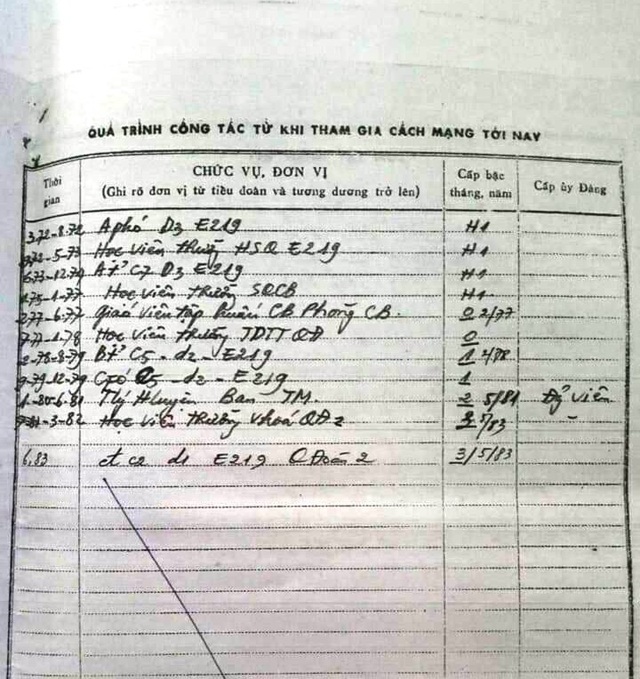 QUÁ TRÌNH CÔNG TÁC TỪ KHI THAM GIA CÁCH MẠNG TỚI NAY
Thời gian
CHỨC VỤ, ĐƠN VỊ
(Ghi rõ đơn vị từ tiểu đoàn và tương đương trở lên)
Cấp bậc tháng, năm
Cấp ủy Đảng
3.72-8.72 A phó D3 E219 H1
5-73 Học viên trường HSQ E219 H1
6.73-12.74 At C7 D3 E219 H1
1.75-1-77 Học viên trường SQCB H1
2.77-6-77 giáo viên tập huấn CB Phòng CB. 0 2/77
7.77-1.78 Học viên trường TDTT QĐ 0
2-78-8-79 Bt C5-d2-E219 1
9-79-12-79 C5-d2-E219 1
1-80-6-81 Ban TM. 2 5/81 Đ/ viên
3-82 Học viên trường QĐ2 /83
6.83 ct c2 d1 E219 QĐoàn 2 3/5/83